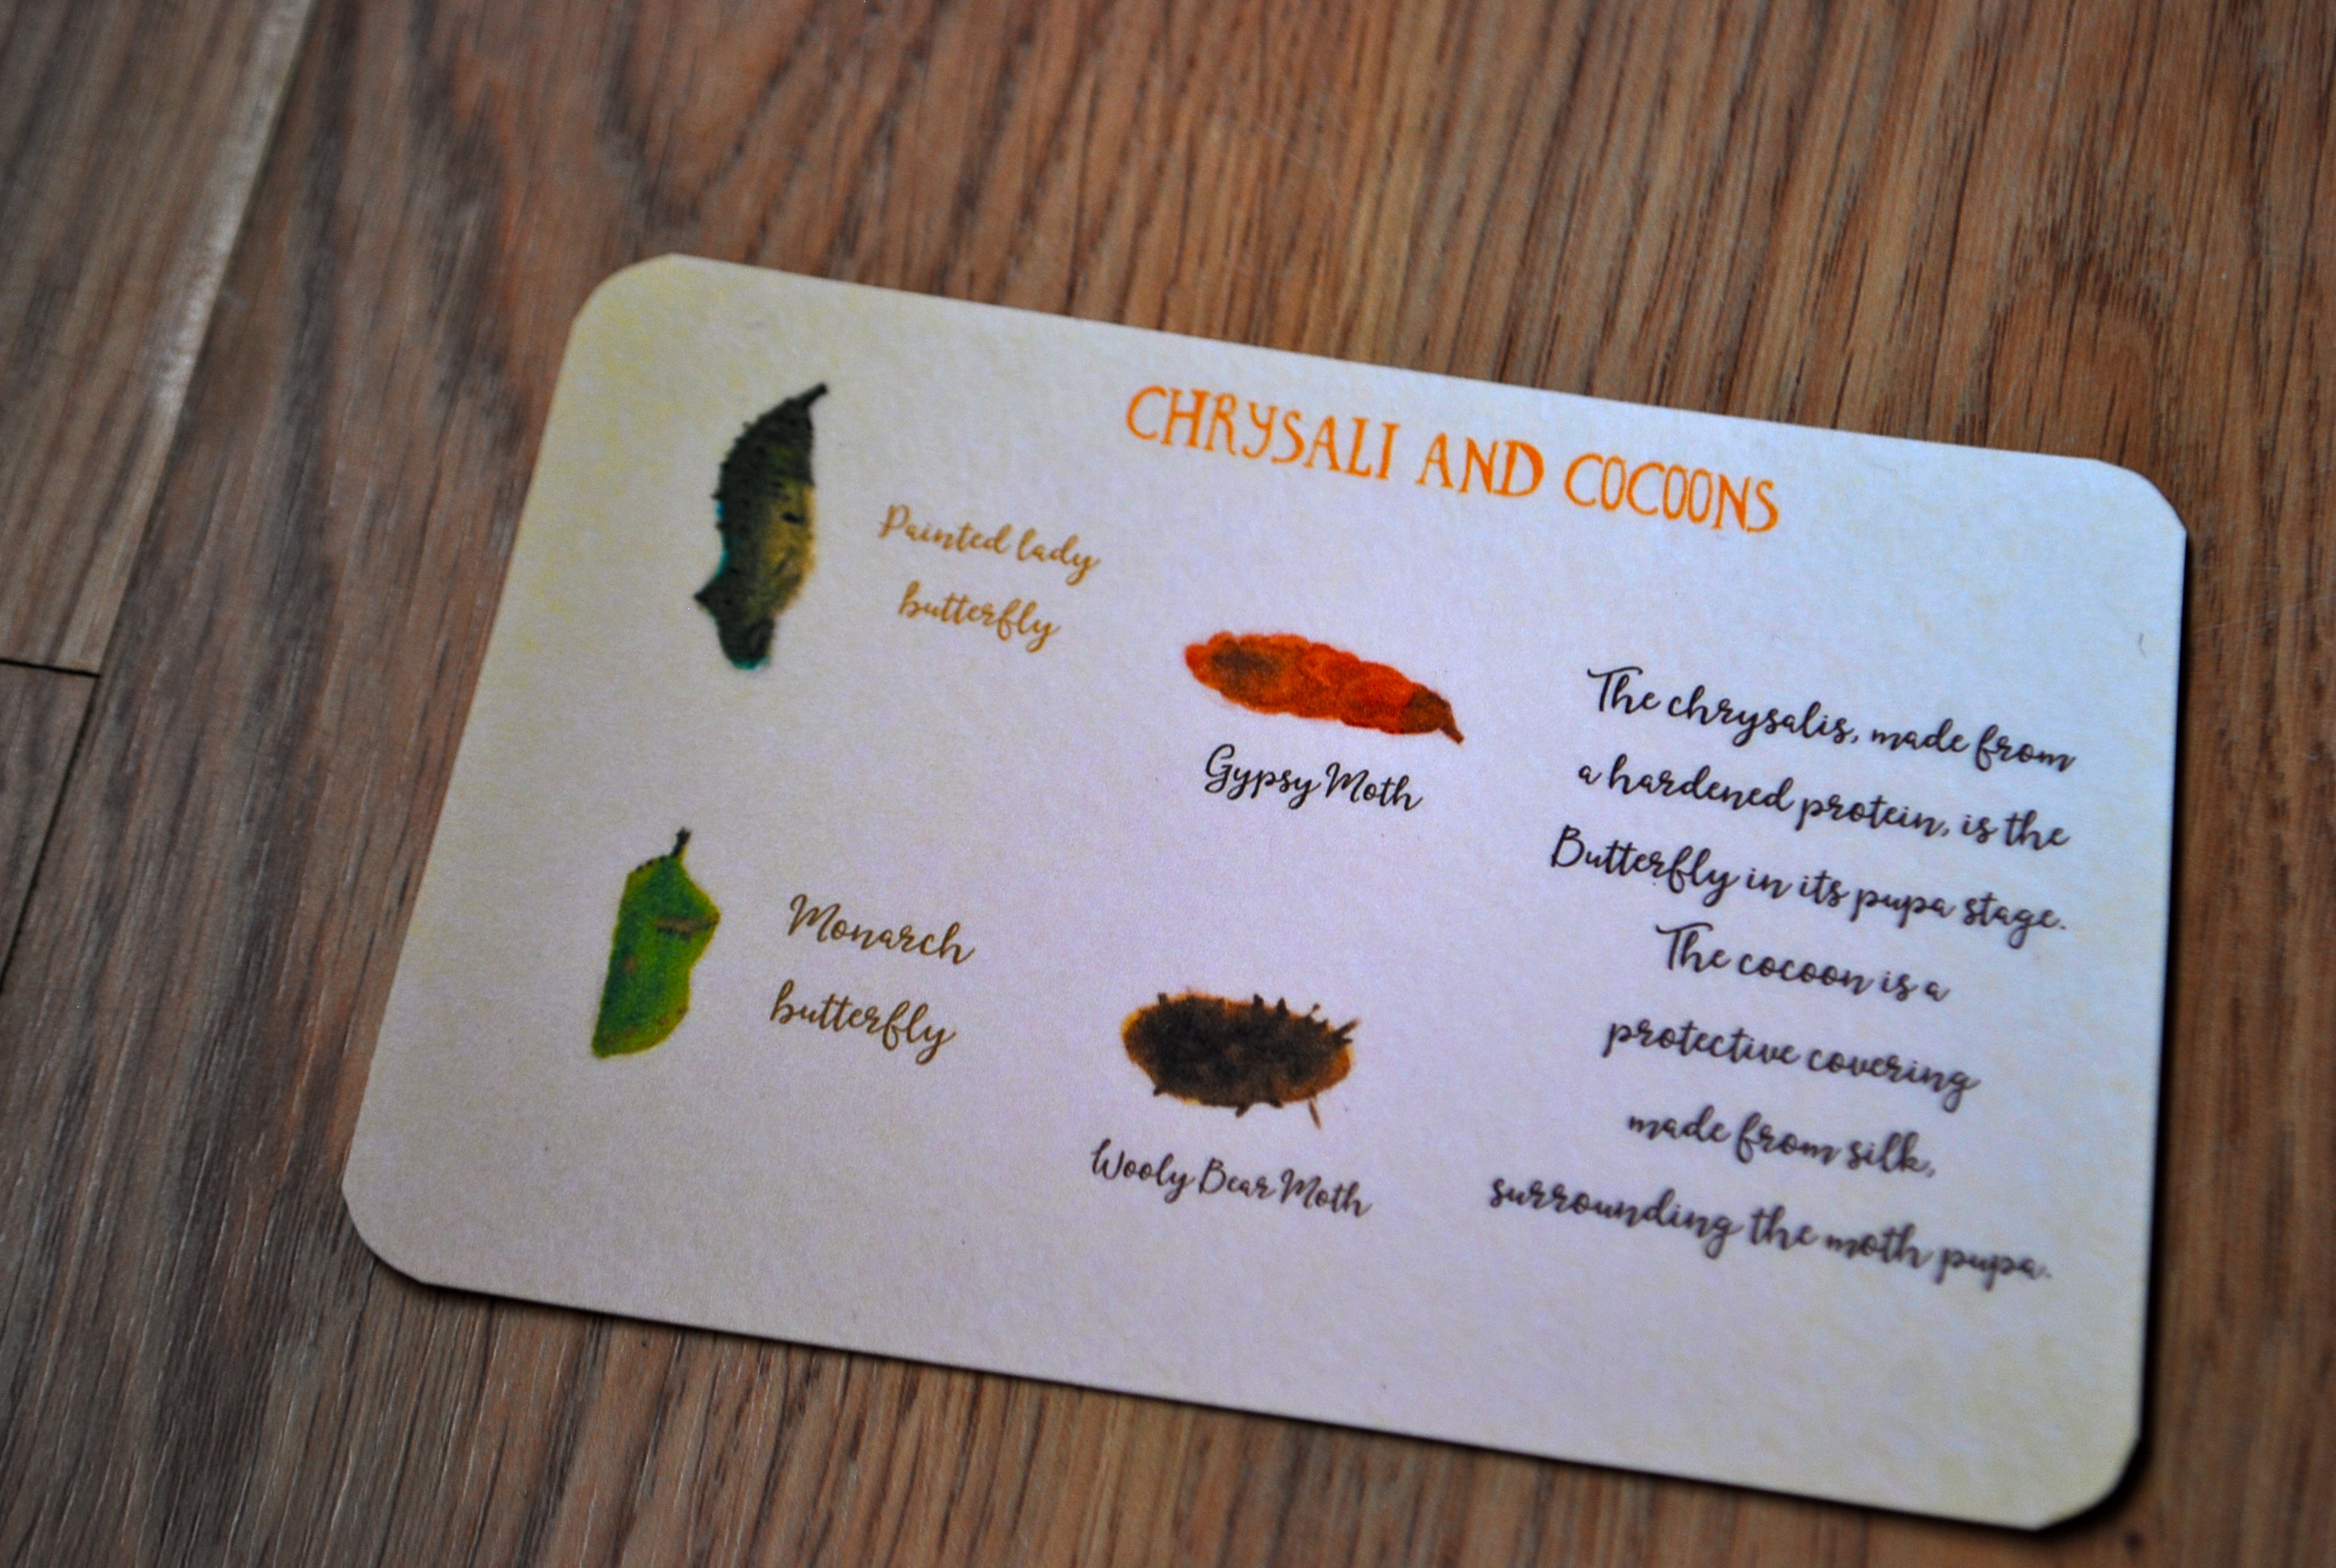 CHRYSALI AND COCOONS
Painted lady
butterfly
Gypsy Moth
Monarch
butterfly
Wooly Bear Moth
The chrysalis, made from
a hardened protein, is the
Butterfly in its pupa stage.
The cocoon is a
protective covering
made from silk,
surrounding the moth pupa.